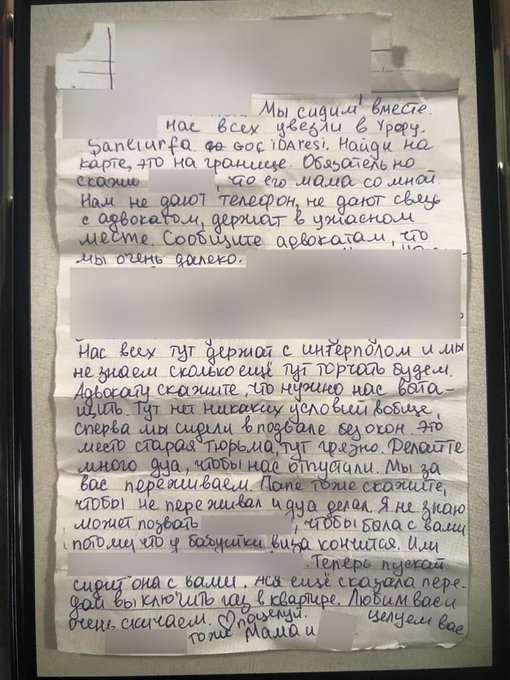 Мы сидим вместе.
нас всех увезли в Урфу.
Şanlıurfa GÖÇ iDAresi. Найди на
карте, это на границе. Обязательно
скажи , что его мама со мной.
Нам не дают телефон, не дают связь
с адвокатом, держат в ужасном
месте. Сообщите адвокатам, что
мы очень далеко.
Нас всех тут держат с интерполом и мы
не знаем сколько ещё тут торчать будем.
Адвокату скажите, что нужно нас выта-
щить. Тут нет никаких условий вобще,
сперва мы сидели в подвале без окон. Это
место старая тюрьма, тут грязно. Делайте
много дуа, чтобы нас отпустили. Мы за
вас переживаем. Папе тоже скажите,
чтобы не переживал и дуа делал. Я не знаю
может позвать , чтобы была с вами
потому что у бабушки виза кончится. Или
. Теперь пускай
сидит она с вами. Ася ещё сказала пере-
дай выключить газ в квартире. Любим вас и
очень скучаем. ♡ поцелуй.
тоже Мама и целуем вас